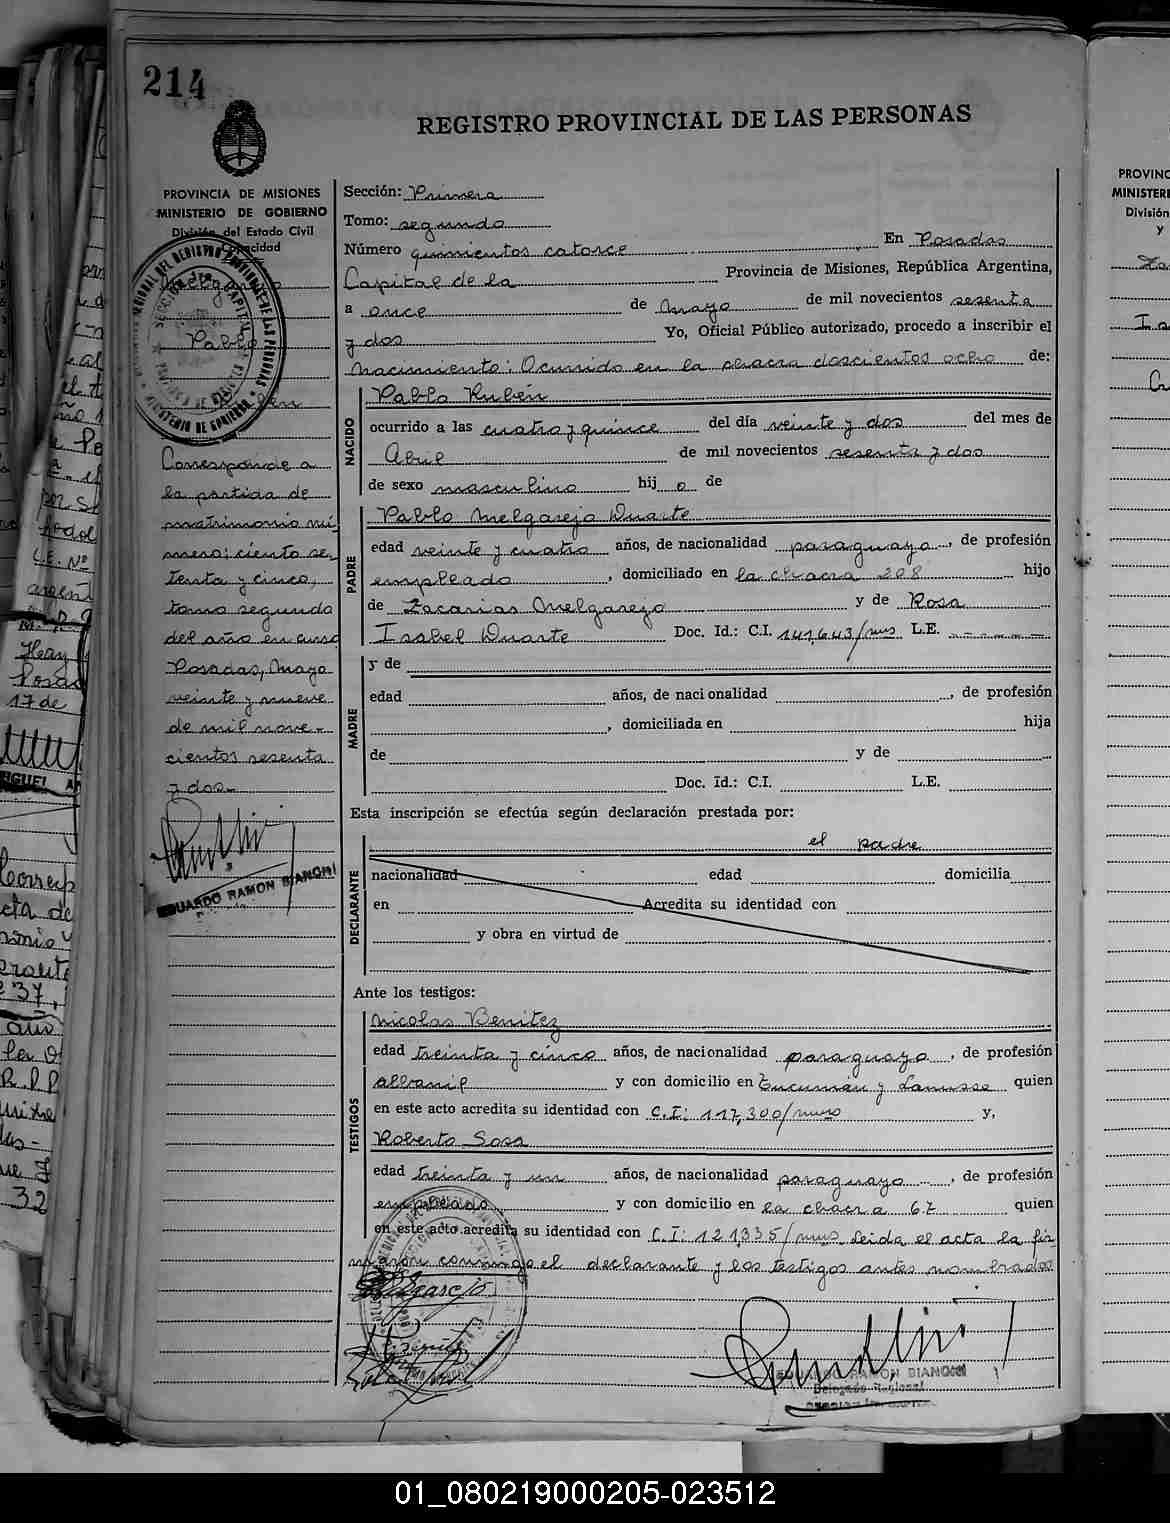 214
REGISTRO PROVINCIAL DE LAS PERSONAS
PROVINCIA DE MISIONES
MINISTERIO DE GOBIERNO
División del Estado Civil
Capacidad
Melgarejo
Pablo
Rubén
Corresponde a
la partida de
matrimonio nú
mero: ciento se
tenta y cinco,
tomo segundo
del año en curso
Posadas, Mayo
veinte y nueve
de mil nove-
cientos sesenta
y dos.-
EDUARDO RAMON BIANCHI
Sección: Primera
Tomo: segundo
Número quinientos catorce En Posadas
Capital de la Provincia de Misiones, República Argentina,
a once de Mayo de mil novecientos sesenta
y dos Yo, Oficial Público autorizado, procedo a inscribir el
nacimiento: Ocurrido en la chacra doscientos ocho de:
NACIDO
Pablo Rubén
ocurrido a las cuatro y quince del día veinte y dos del mes de
Abril de mil novecientos sesenta y dos
de sexo masculino hij o de
PADRE
Pablo Melgarejo Duarte
edad veinte y cuatro años, de nacionalidad paraguayo, de profesión
empleado, domiciliado en la chacra 208 hijo
de Zacarias Melgarejo y de Rosa
Isabel Duarte Doc. Id.: C.I. 141,643/mnes L.E. - - - - -
MADRE
y de
edad años, de nacionalidad , de profesión
, domiciliada en hija
de y de
Doc. Id.: C.I. L.E.
Esta inscripción se efectúa según declaración prestada por:
DECLARANTE
el padre
nacionalidad edad domicilia
en Acredita su identidad con
y obra en virtud de
Ante los testigos:
TESTIGOS
Nicolas Benitez
edad treinta y cinco años, de nacionalidad paraguayo, de profesión
albanil y con domicilio en Tucumán y Lanusse quien
en este acto acredita su identidad con C.I: 117,300/mnes y,
Roberto Sosa
edad treinta y un años, de nacionalidad paraguayo, de profesión
empleado y con domicilio en la chacra 67 quien
en este acto acredita su identidad con C.I: 121,335/mnes. Leida el acta la fir-
maron conmigo el declarante y los testigos antes nombrados
EDUARDO RAMON BIANCHI
Delegado Regional
01_080219000205-023512